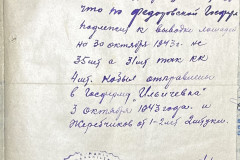 что по Федоровской Госферм
подлежит к выводке лошадей
на 30 октября 1943г. не
35шт а 31шт т.к. КК
4шт. Кобыл отправлены
в Госферму "Ильичевка"
3 октября 1943 года. и
Жеребчиков от 1-2лет 2штуки.